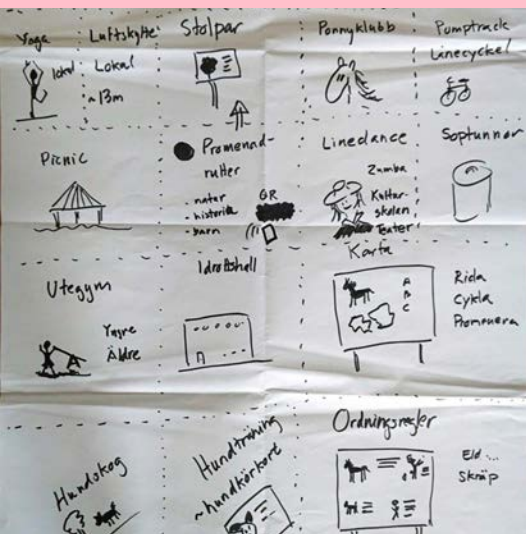 Yoga
Luftskytte
Stolpar
Ponnyklubb
Pumptrack
lokal
Lokal
~13m
Linecykel
Picnic
Promenad-
rutter
- natur
- historik
- barn
QR
Linedance
Zumba
Kultur-
skolan
Teater
Soptunnor
Utegym
Yngre
Äldre
Idrottshall
Karta
A
B
C
Rida
Cykla
Promenera
Hundskog
Hundträning
~hundkörkort
Ordningsregler
Eld ...
Skräp